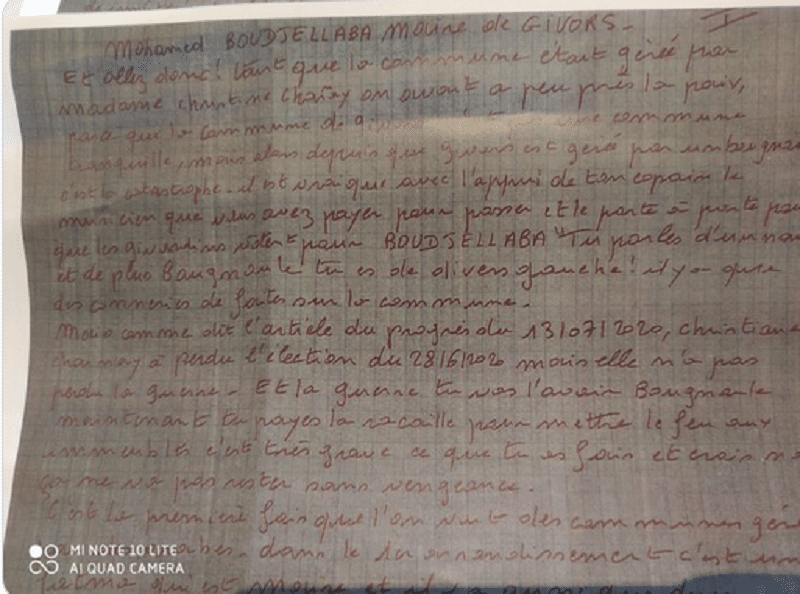 I
Mohamed BOUDJELLABA Maire de GIVORS -
Et allez donc! tant que la commune était gérée par
madame christine charnay on avait a peu près la paix,
para que la commune de une commune
tranquille, mais alors depuis que givors est géré par un bougnou
c'est la catastrophe - il est vrai que avec l'appui de ton copain le
musicien que vous avez payer pour passer et le porte à porte pou
que les givordins votent pour BOUDJELLABA" Tu parles d'un no
et de plus Bougnoule tu es de divers gauche! il y a que
des conneries de faites sur la commune.
Mais comme dit l'article du progrès du 13/07/2020, christiane
charnay à perdu l'élection du 28/6/2020 mais elle n'a pas
perdu la guerre - Et la guerre tu vas l'avoir Bougnoule
maintenant tu payes la racaille pour mettre le feu aux
immeubles c'est très grave ce que tu as fais et crois m
ça ne va pas rester sans vengeance.
C'est la première fois que l'on voit des communes géré
dans le arrondissement c'est un
qui est maire et il y a aussi
MI NOTE 10 LITE
AI QUAD CAMERA